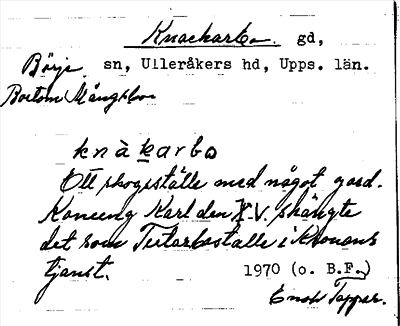 Knackarbo gd,
Börje sn, Ulleråkers hd, Upps. län.
Bortom Mångsbo
knàkarbo
Ett skogsställe med något gård.
Konung Karl den XV. skängte
det som Tertarbostalle i Kronans
tjänst. 1970 (o. B.F.)
Enok Tapper.